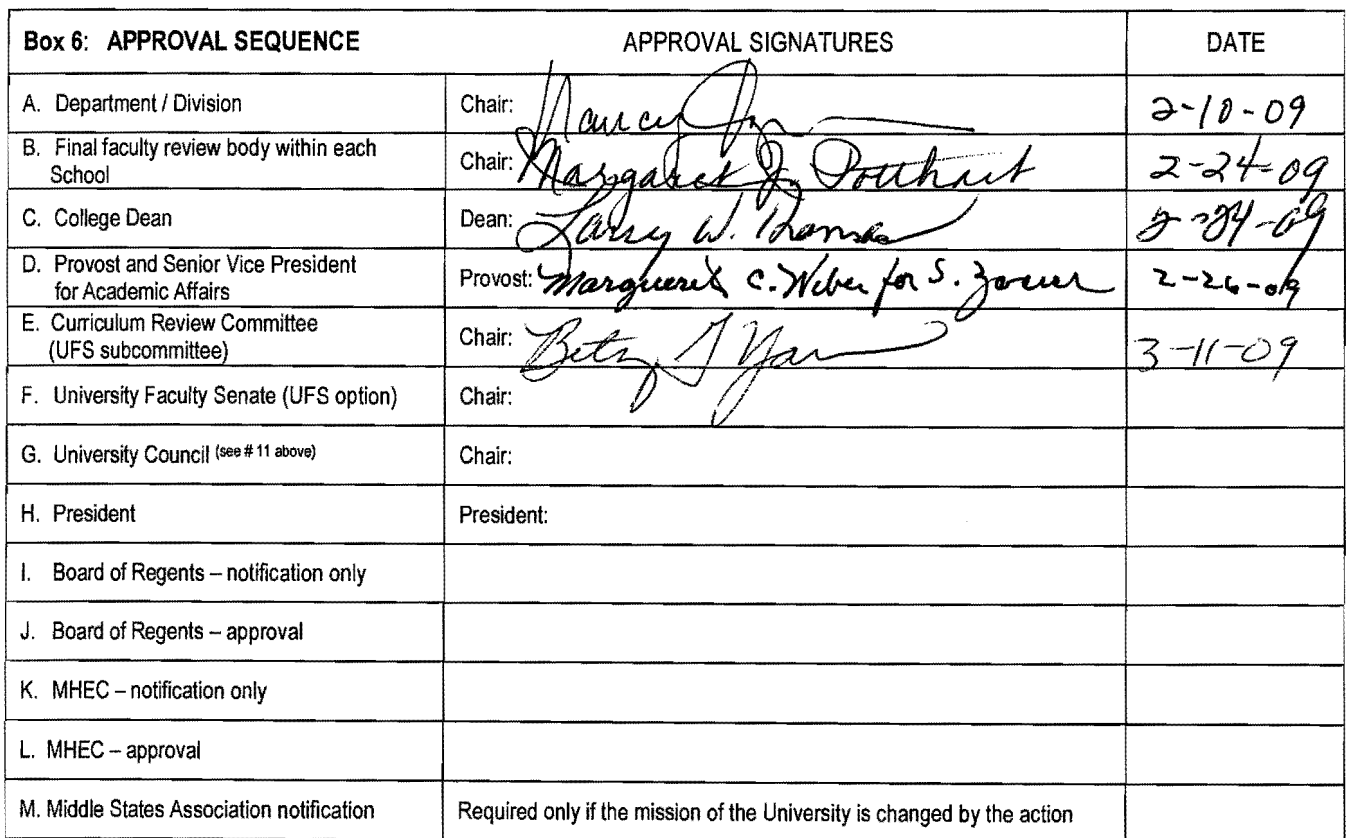 Box 6: APPROVAL SEQUENCE APPROVAL SIGNATURES DATE
A. Department / Division Chair: Nancy 2-10-09
B. Final faculty review body within each
School Chair: Margaret J. Potthast 2-24-09
C. College Dean Dean: Larry W. Thomas 2-24-09
D. Provost and Senior Vice President
for Academic Affairs Provost: Marguerite C. Weber for S. 2-26-09
E. Curriculum Review Committee
(UFS subcommittee) Chair: Betsy 3-11-09
F. University Faculty Senate (UFS option) Chair:
G. University Council (see # 11 above) Chair:
H. President President:
I. Board of Regents – notification only
J. Board of Regents – approval
K. MHEC – notification only
L. MHEC – approval
M. Middle States Association notification Required only if the mission of the University is changed by the action